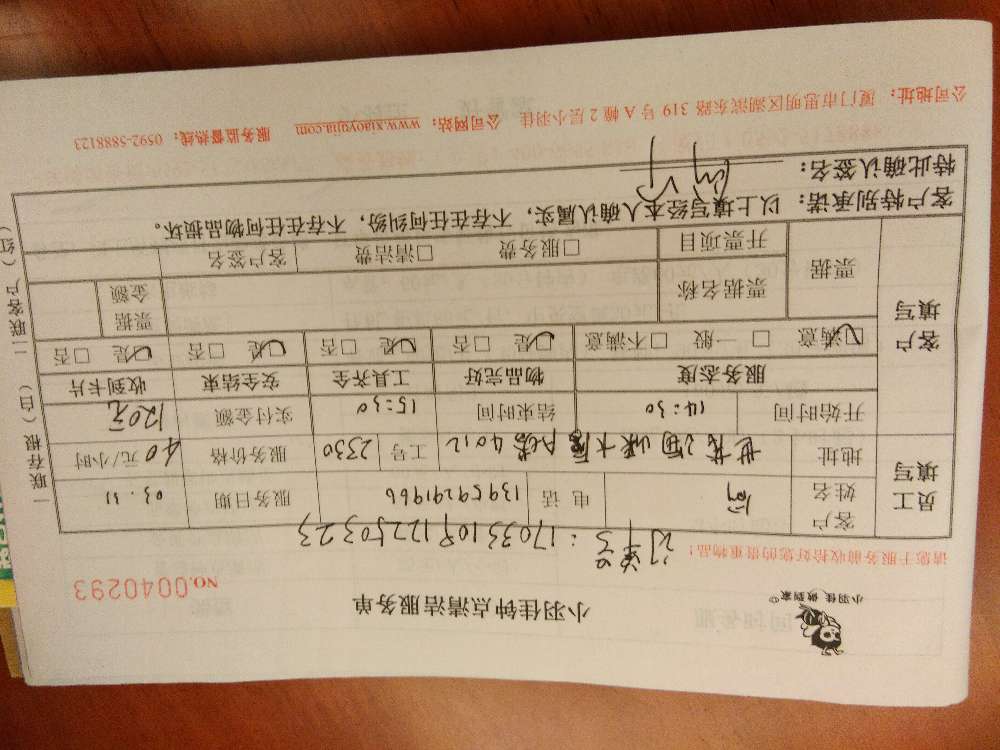 小羽佳 做到家
小羽佳钟点清洁服务单
NO.0040293
请您于服务前收拾好您的贵重物品！
订单号：17033109122503 23
员工填写
客户姓名 何 电话 13959291966 服务日期 03.31
地址 4012 工号 2330 服务价格 40 元/小时
开始时间 14:30 结束时间 15:30 实付金额 120元
客户填写
服务态度 物品完好 工具齐全 安全结束 收到卡片
☑满意 □一般 □不满意 ☑是 □否 ☑是 □否 ☑是 □否 ☑是 □否
票据 票据名称 票据金额
开票项目 □服务费 □清洁费 客户签名
客户特别承诺：以上填写经本人确认属实，不存在任何纠纷，不存在任何物品损坏。
特此确认签名：何
公司地址：厦门市思明区湖滨东路 319 号 A 幢 2 层小羽佳 公司网站：www.xiaoyujia.com 服务监督热线：0592-5888123
一联存根（白） 二联客户（红）